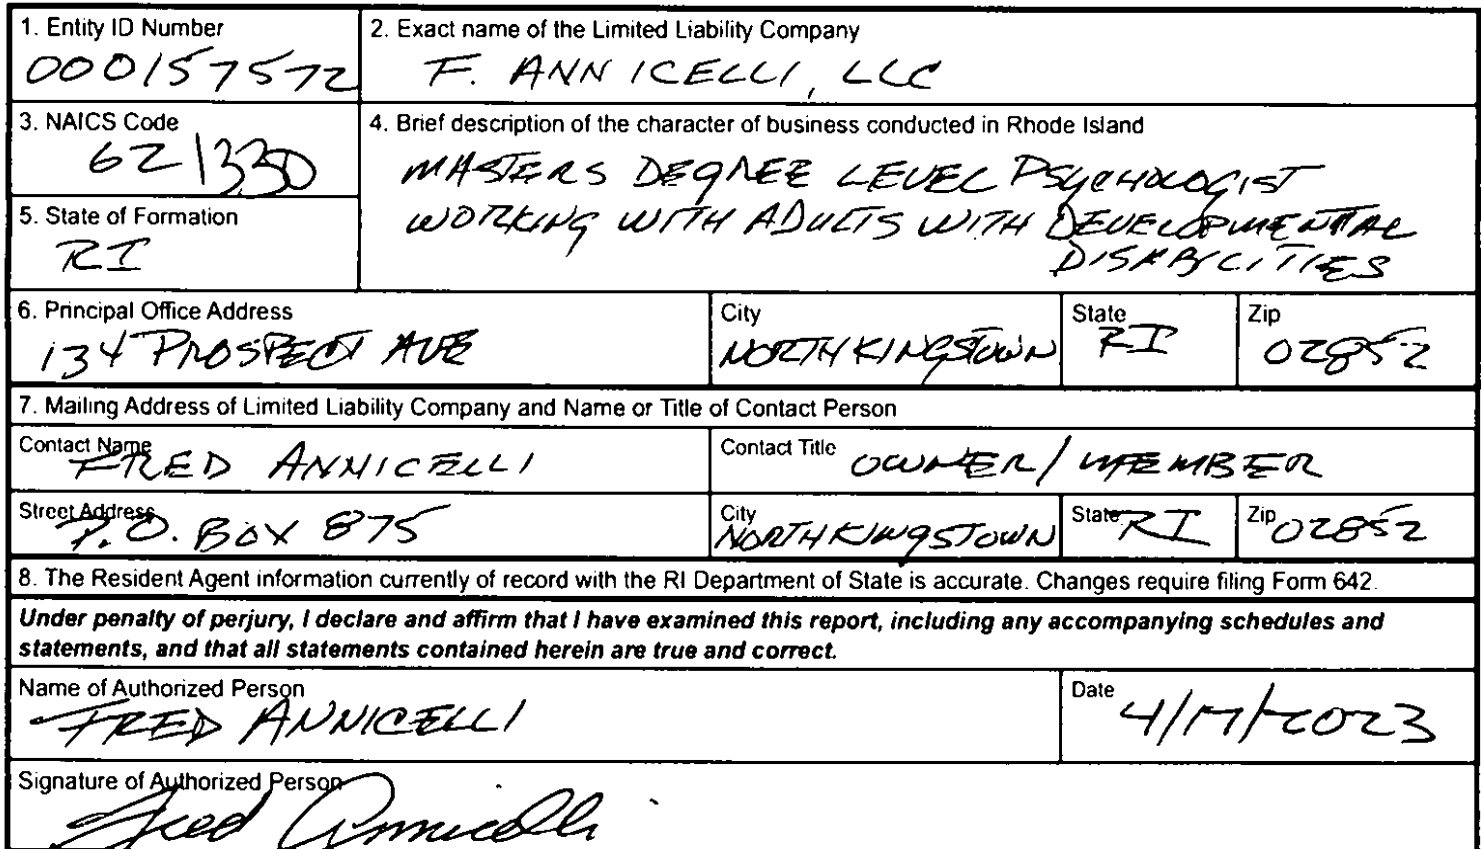 1. Entity ID Number
000157572
2. Exact name of the Limited Liability Company
F. ANNICELLI, LLC
3. NAICS Code
621330
4. Brief description of the character of business conducted in Rhode Island
MASTERS DEGREE LEVEL PSYCHOLOGIST
WORKING WITH ADULTS WITH DEVELOPMENTAL
DISABILITIES
5. State of Formation
RI
6. Principal Office Address
134 PROSPECT AVE
City
NORTH KINGSTOWN
State
RI
Zip
02852
7. Mailing Address of Limited Liability Company and Name or Title of Contact Person
Contact Name
FRED ANNICELLI
Contact Title
OWNER/MEMBER
Street Address
P.O. BOX 875
City
NORTH KINGSTOWN
State
RI
Zip
02852
8. The Resident Agent information currently of record with the RI Department of State is accurate. Changes require filing Form 642.
Under penalty of perjury, I declare and affirm that I have examined this report, including any accompanying schedules and
statements, and that all statements contained herein are true and correct.
Name of Authorized Person
FRED ANNICELLI
Date
4/17/2023
Signature of Authorized Person
Fred Annicelli